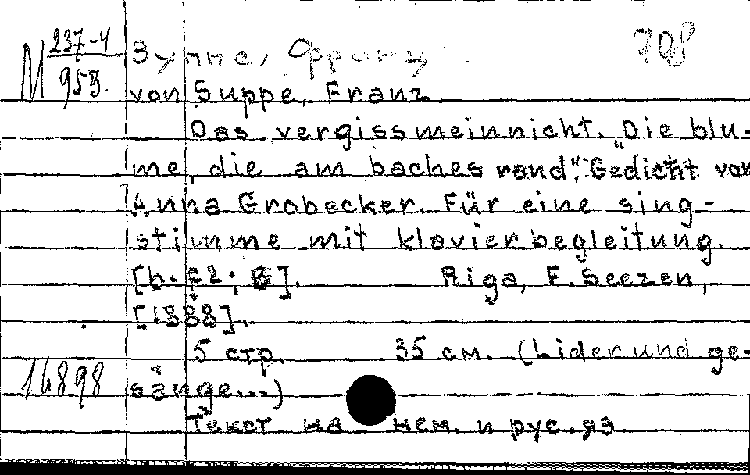 М 237-4/953. Зуппе, Франц 708
von Suppe, Franz
Das vergissmeinnicht. "Die blu-
me, die am baches rand". Gedicht von
Anna Grobecker. Für eine sing-
stimme mit klavierbegleitung.
Riga, E. Seezen,
[1888].
5 стр. 35 см. (Lider und ge-
16898 sänge...)
Текст на нем. и рус. яз.